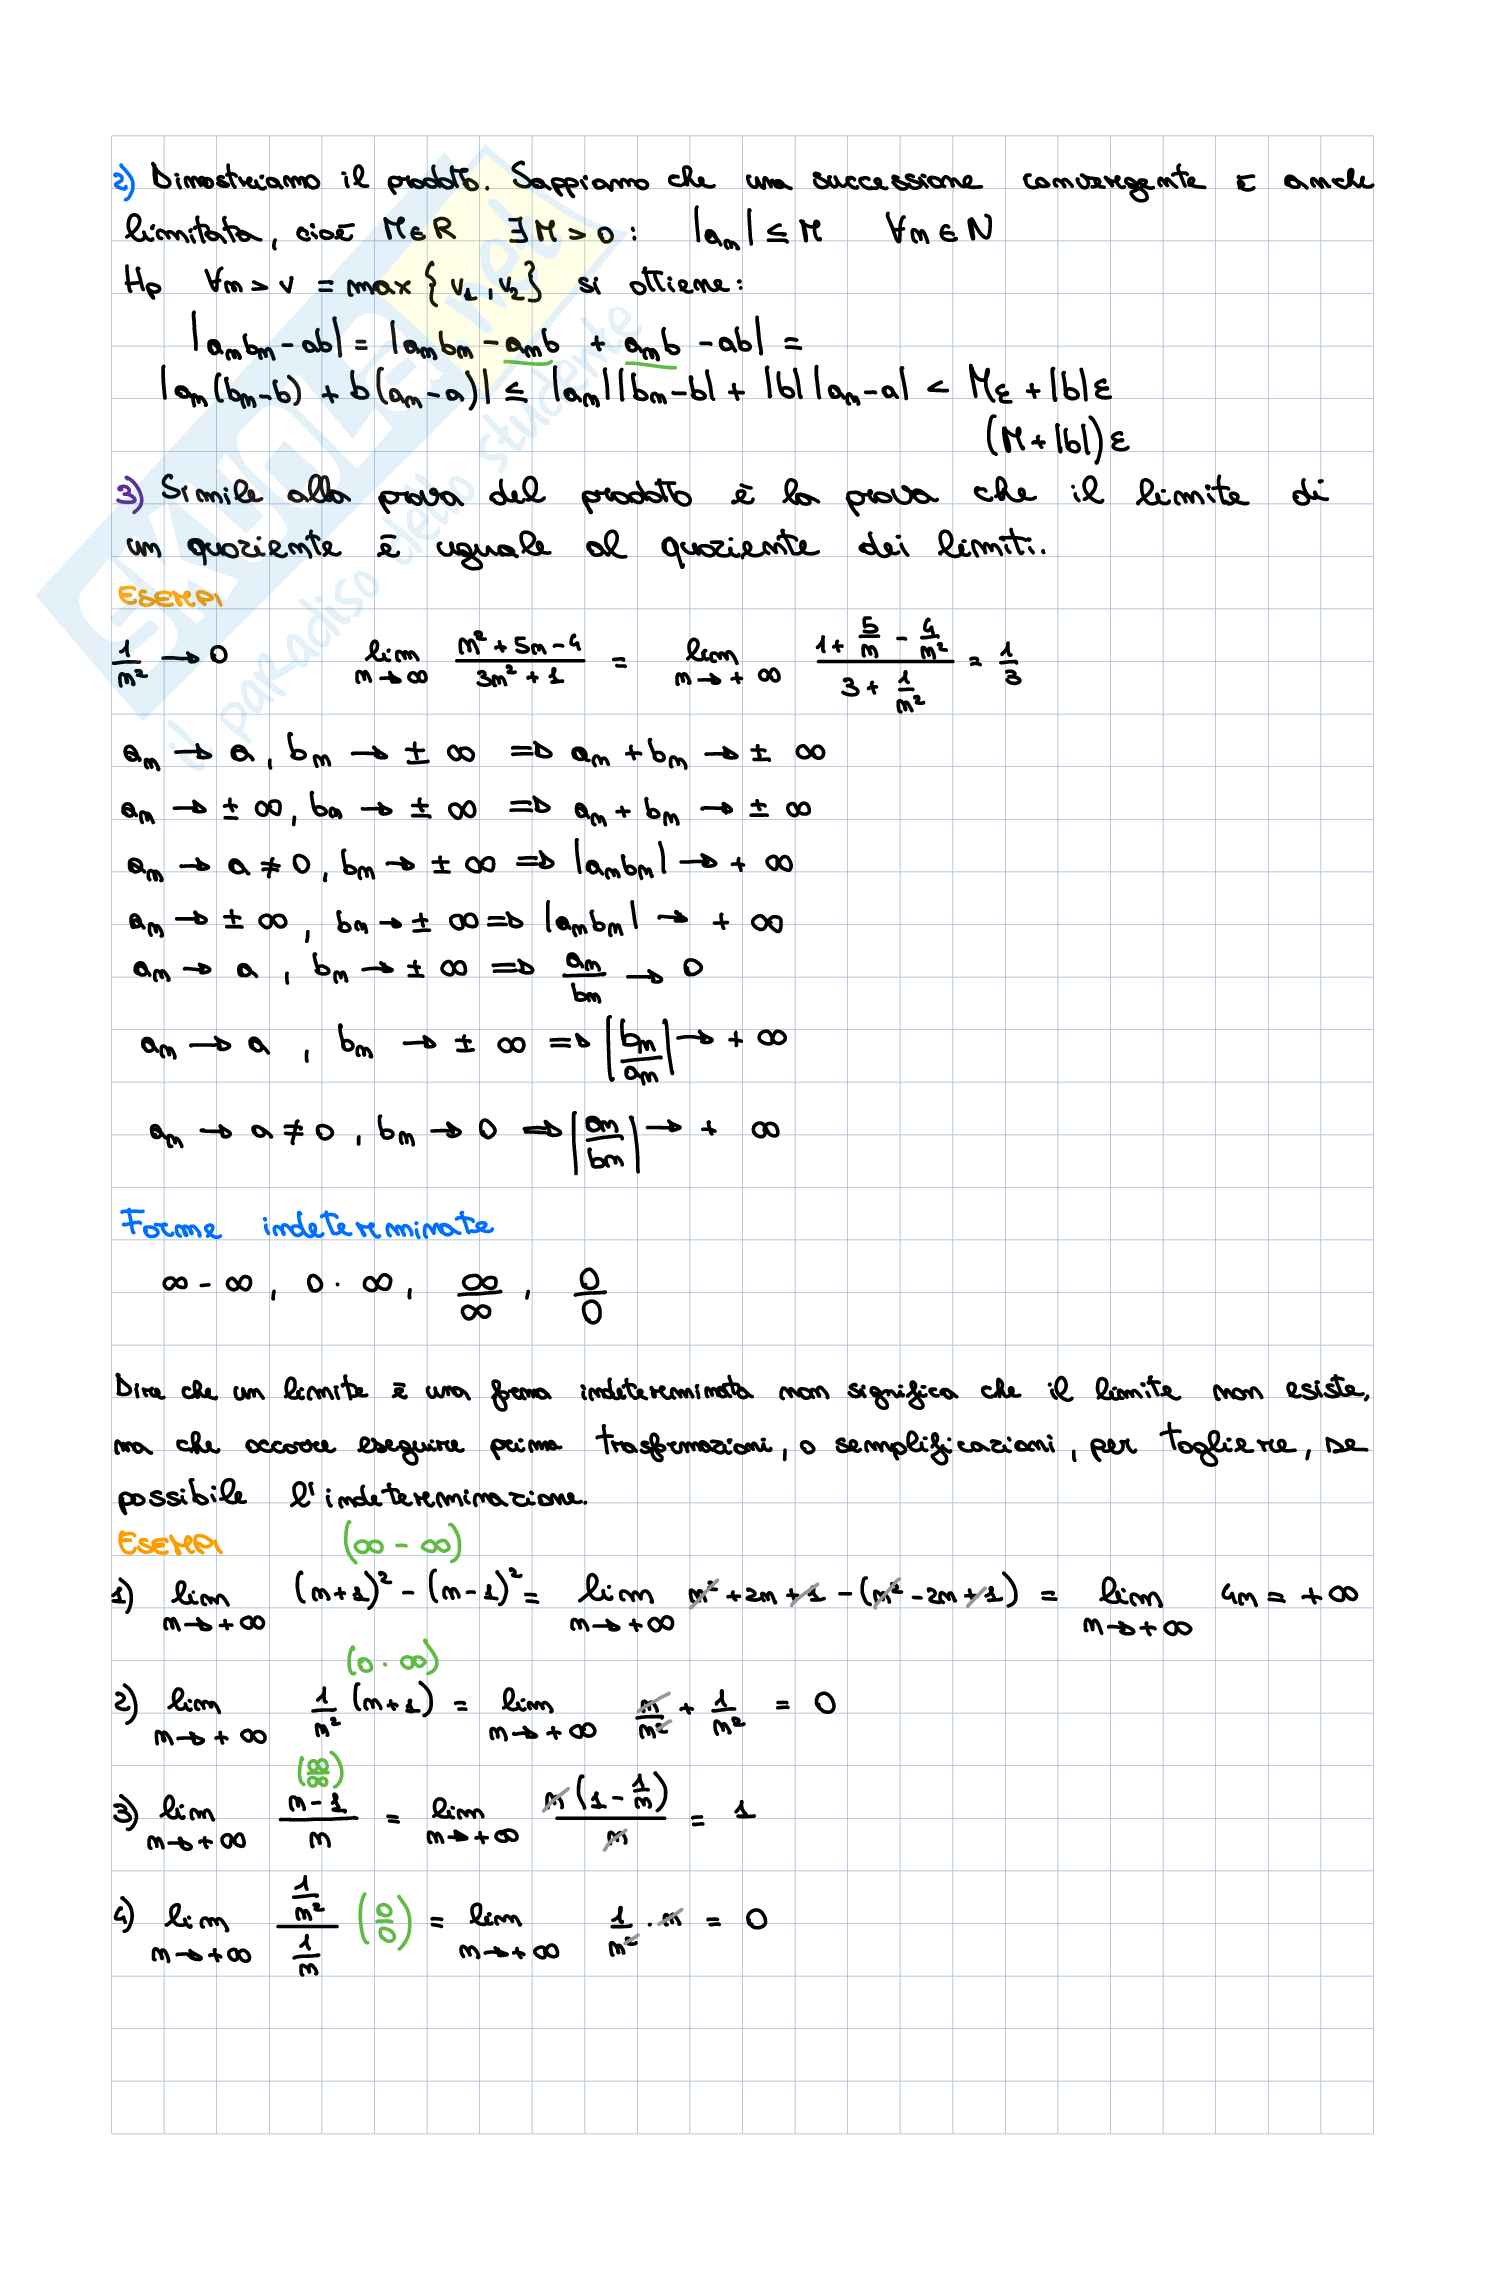 2) Dimostriamo il prodotto. Sappiamo che una successione convergente è anche
limitata, cioè M∈R ∃M>0: |aₙ| ≤ M ∀n∈N
Hp ∀n>ν = max{ν₁,ν₂} si ottiene:
|aₙbₙ-ab| = |aₙbₙ-aₙb + aₙb-ab| =
|aₙ(bₙ-b) + b(aₙ-a)| ≤ |aₙ||bₙ-b| + |b||aₙ-a| < Mε + |b|ε
(M+|b|)ε
3) Simile alla prova del prodotto è la prova che il limite di
un quoziente è uguale al quoziente dei limiti.
ESEMPI
1/n² → 0 lim n→∞ (n²+5n-4)/(3n²+1) = lim n→+∞ (1+5/n-4/n²)/(3+1/n²) = 1/3
aₙ → a, bₙ → ±∞ ⇒ aₙ+bₙ → ±∞
aₙ → ±∞, bₙ → ±∞ ⇒ aₙ+bₙ → ±∞
aₙ → a≠0, bₙ → ±∞ ⇒ |aₙbₙ| → +∞
aₙ → ±∞, bₙ → ±∞ ⇒ |aₙbₙ| → +∞
aₙ → a, bₙ → ±∞ ⇒ aₙ/bₙ → 0
aₙ → a, bₙ → ±∞ ⇒ |bₙ/aₙ| → +∞
aₙ → a≠0, bₙ → 0 ⇒ |aₙ/bₙ| → +∞
Forme indeterminate
∞-∞, 0·∞, ∞/∞, 0/0
Dire che un limite è una forma indeterminata non significa che il limite non esiste,
ma che occorre eseguire prima trasformazioni, o semplificazioni, per togliere, se
possibile l'indeterminazione.
ESEMPI (∞-∞)
1) lim n→+∞ (n+1)² - (n-1)² = lim n→+∞ n²+2n+1-(n²-2n+1) = lim n→+∞ 4n = +∞
(0·∞)
2) lim n→+∞ 1/n² (n+1) = lim n→+∞ n/n² + 1/n² = 0
(∞/∞)
3) lim n→+∞ (n-1)/n = lim n→+∞ n(1-1/n)/n = 1
4) lim n→+∞ (1/n²)/(1/n) (0/0) = lim n→+∞ 1/n² · n = 0
SKUOLA.net
il paradiso dello studente